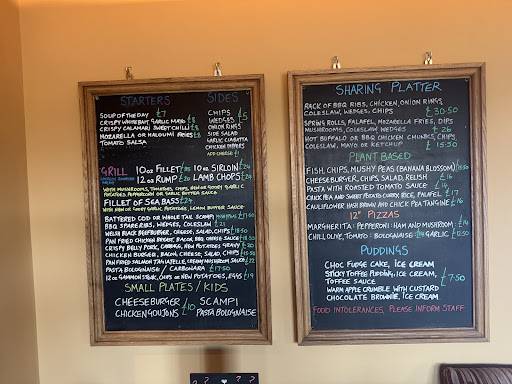 STARTERS
SOUP OF THE DAY £7
CRISPY WHITEBAIT GARLIC MAYO £8
CRISPY CALAMARI SWEET CHILLI £8
MOZARELLA OR HALOUMI FRIES £8
TOMATO SALSA
SIDES
CHIPS
WEDGES
ONION RINGS
SIDE SALAD
GARLIC CIABATTA
CHICKEN DIPPERS
£5
ADD CHEESE £1
GRILL
10oz FILLET 10oz SIRLOIN £24
12oz RUMP £20 LAMB CHOPS £24
WITH MUSHROOMS, TOMATOES, CHIPS, NEW OR GARLIC
POTATOES PEPPERCORN OR GARLIC BUTTER SAUCE
FILLET OF SEA BASS £24
WITH NEW OR GARLIC POTATOES, LEMON BUTTER SAUCE
BATTERED COD OR WHOLE TAIL SCAMPI
BBQ SPARE RIBS, WEDGES, COLESLAW £21
WELSH BLACK BEEFBURGER, CHEESE, SALAD, CHIPS £18.50
PAN FRIED CHICKEN BREAST, BACON, BBQ, CHEESE SAUCE
CRISPY BELLY PORK, CABBAGE, NEW POTATOES, GRAVY £20
CHICKEN BURGER, BACON, CHEESE, SALAD, CHIPS
PAN FRIED SALMON TAGLIATELLE, CREAMY MUSHROOM SAUCE
PASTA BOLOGNAISE / CARBONARA £17.50
12oz GAMMON STEAK, CHIPS OR NEW POTATOES, EGGS £19
SMALL PLATES / KIDS
CHEESEBURGER SCAMPI
£10
CHICKEN GOUJONS PASTA BOLOGNAISE
SHARING PLATTER
RACK OF BBQ RIBS, CHICKEN, ONION RINGS,
COLESLAW, WEDGES, CHIPS £30.50
SPRING ROLLS, FALAFEL, MOZARELLA FRIES, DIPS
MUSHROOMS, COLESLAW WEDGES £26
HOT BUFFALO OR BBQ CHICKEN CHUNKS, CHIPS,
COLESLAW, MAYO OR KETCHUP £15.50
PLANT BASED
FISH, CHIPS, MUSHY PEAS (BANANA BLOSSOM)
CHEESEBURGER, CHIPS, SALAD, RELISH £16
PASTA WITH ROASTED TOMATO SAUCE £14
CHICK PEA AND SWEET POTATO CURRY, RICE, FALAFEL £17
CAULIFLOWER HASH BROWN AND CHICK PEA TANGINE £16
12" PIZZAS
MARGHERITA: PEPPERONI: HAM AND MUSHROOM: £14
CHILLI, OLIVE, TOMATO: BOLOGNAISE £14 GARLIC £10.50
PUDDINGS
CHOC FUDGE CAKE, ICE CREAM
STICKY TOFFEE PUDDING, ICE CREAM,
TOFFEE SAUCE
£7.50
WARM APPLE CRUMBLE WITH CUSTARD
CHOCOLATE BROWNIE, ICE CREAM
FOOD INTOLERANCES, PLEASE INFORM STAFF